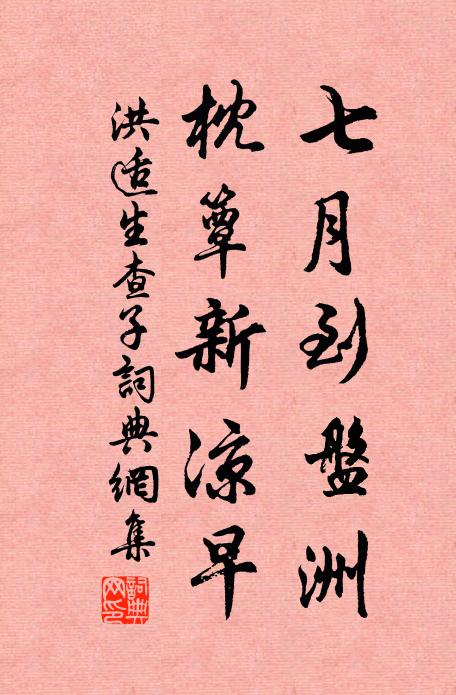 七月到盤洲
枕簟新涼早
洪适生查子詞典網集
詞典網印